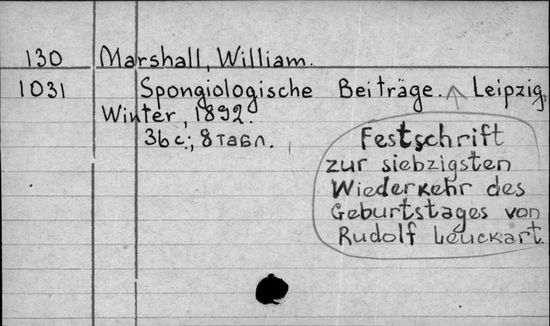 130 Marshall, William.
1031 Spongiologische Beiträge. Leipzig,
Winter, 1892.
36 с.; 8 табл.
Festschrift
zur siebzigsten
Wiederkehr des
Geburtstages von
Rudolf Leuckart.